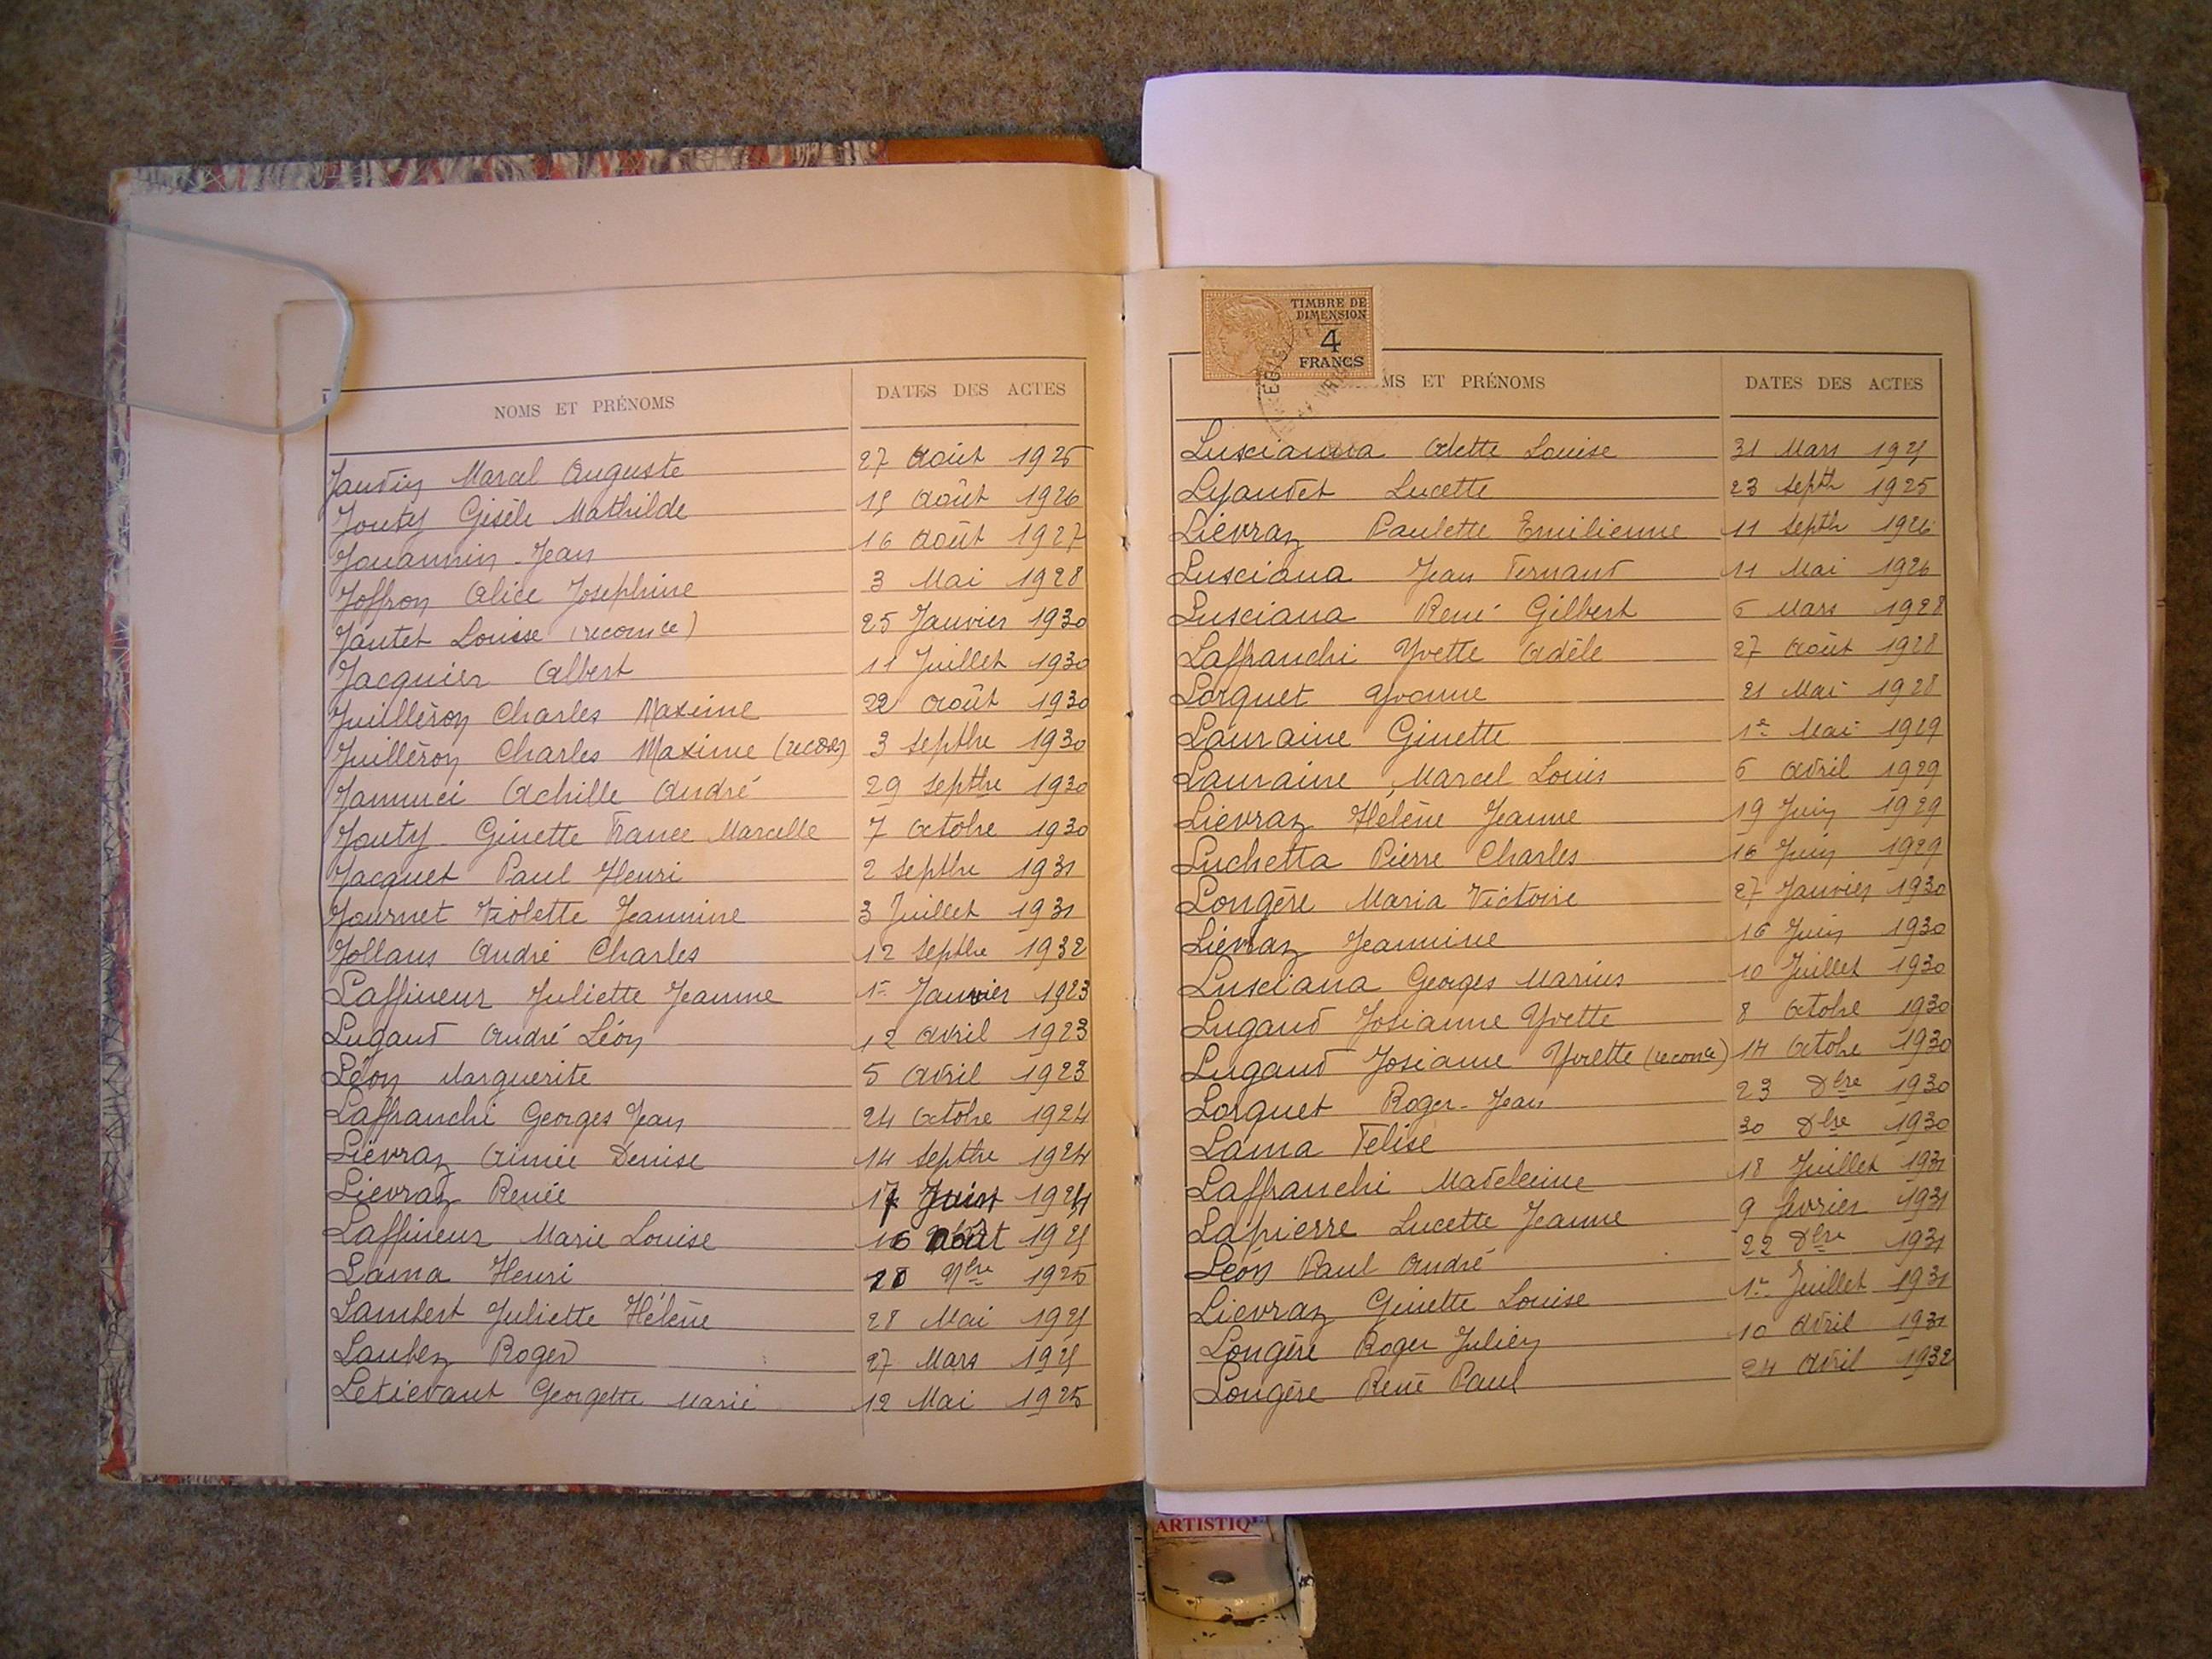 NOMS ET PRÉNOMS DATES DES ACTES
Jaudin Marcel Auguste 27 Août 1925
Jouty Gisèle Mathilde 15 Août 1926
Jouannin Jean 16 Août 1927
Joffron Alice Josephine 3 Mai 1928
Jautet Louise (reconce) 25 Janvier 1930
Jacquier Albert 11 Juillet 1930
Juilléron Charles Maxime 22 Août 1930
Juilléron Charles Maxime 3 Septbre 1930
Jannuci Achille André 29 Septbre 1930
Jouty Ginette France Marcelle 7 Octobre 1930
Jacquet Paul Henri 2 Septbre 1931
Journet Violette Jeannine 3 Juillet 1931
Jollans André Charles 12 Septbre 1932
Laffineur Juliette Jeanne 1er Janvier 1923
Lugaud André Léon 12 Avril 1923
Léon Marguerite 5 Avril 1923
Laffranchi Georges Jean 24 Octobre 1924
Liévraz Aimée Denise 14 Septbre 1924
Lievraz Renée 17 1924
Laffineur Marie Louise 16 Août 1925
Lama Henri 28 9bre 1925
Lambert Juliette Hélène 28 Mai 1925
Laubez Roger 27 Mars 1925
Letievant Georgette Marie 12 Mai 1925
TIMBRE DE
DIMENSION
4
FRANCS
MS ET PRÉNOMS DATES DES ACTES
Lusciana Odette Louise 31 Mars 1925
Lyaudet Lucette 23 Septbre 1925
Liévraz Paulette Emilienne 11 Septbre 1926
Lusciana Jean Fernand 11 Mai 1926
Lusciana René Gilbert 6 Mars 1928
Laffranchi Yvette Adèle 27 Août 1928
Lorquet Yvonne 21 Mai 1928
Lauraine Ginette 1er Mai 1929
Lauraine Marcel Louis 6 Avril 1929
Liévraz Hélène Jeanne 19 Juin 1929
Luchetta Pierre Charles 16 Juin 1929
Longère Maria Victoire 27 Janvier 1930
Liévraz Jeannine 16 Juin 1930
Lusciana Georges Marius 10 Juillet 1930
Lugaud Josianne Yvette 8 Octobre 1930
Lugaud Josiane Yvette (reconce) 14 Octobre 1930
Lorquet Roger-Jean 23 Dbre 1930
Lama Felise 30 Dbre 1930
Laffranchi Madeleine 18 Juillet 1931
Lapierre Lucette Jeanne 9 fevrier 1931
Léon Paul André 22 Dbre 1931
Lievraz Ginette Louise 1er Juillet 1931
Longère Roger Julien 10 Avril 1931
Longère René Paul 24 Avril 1932
ARTISTIQ